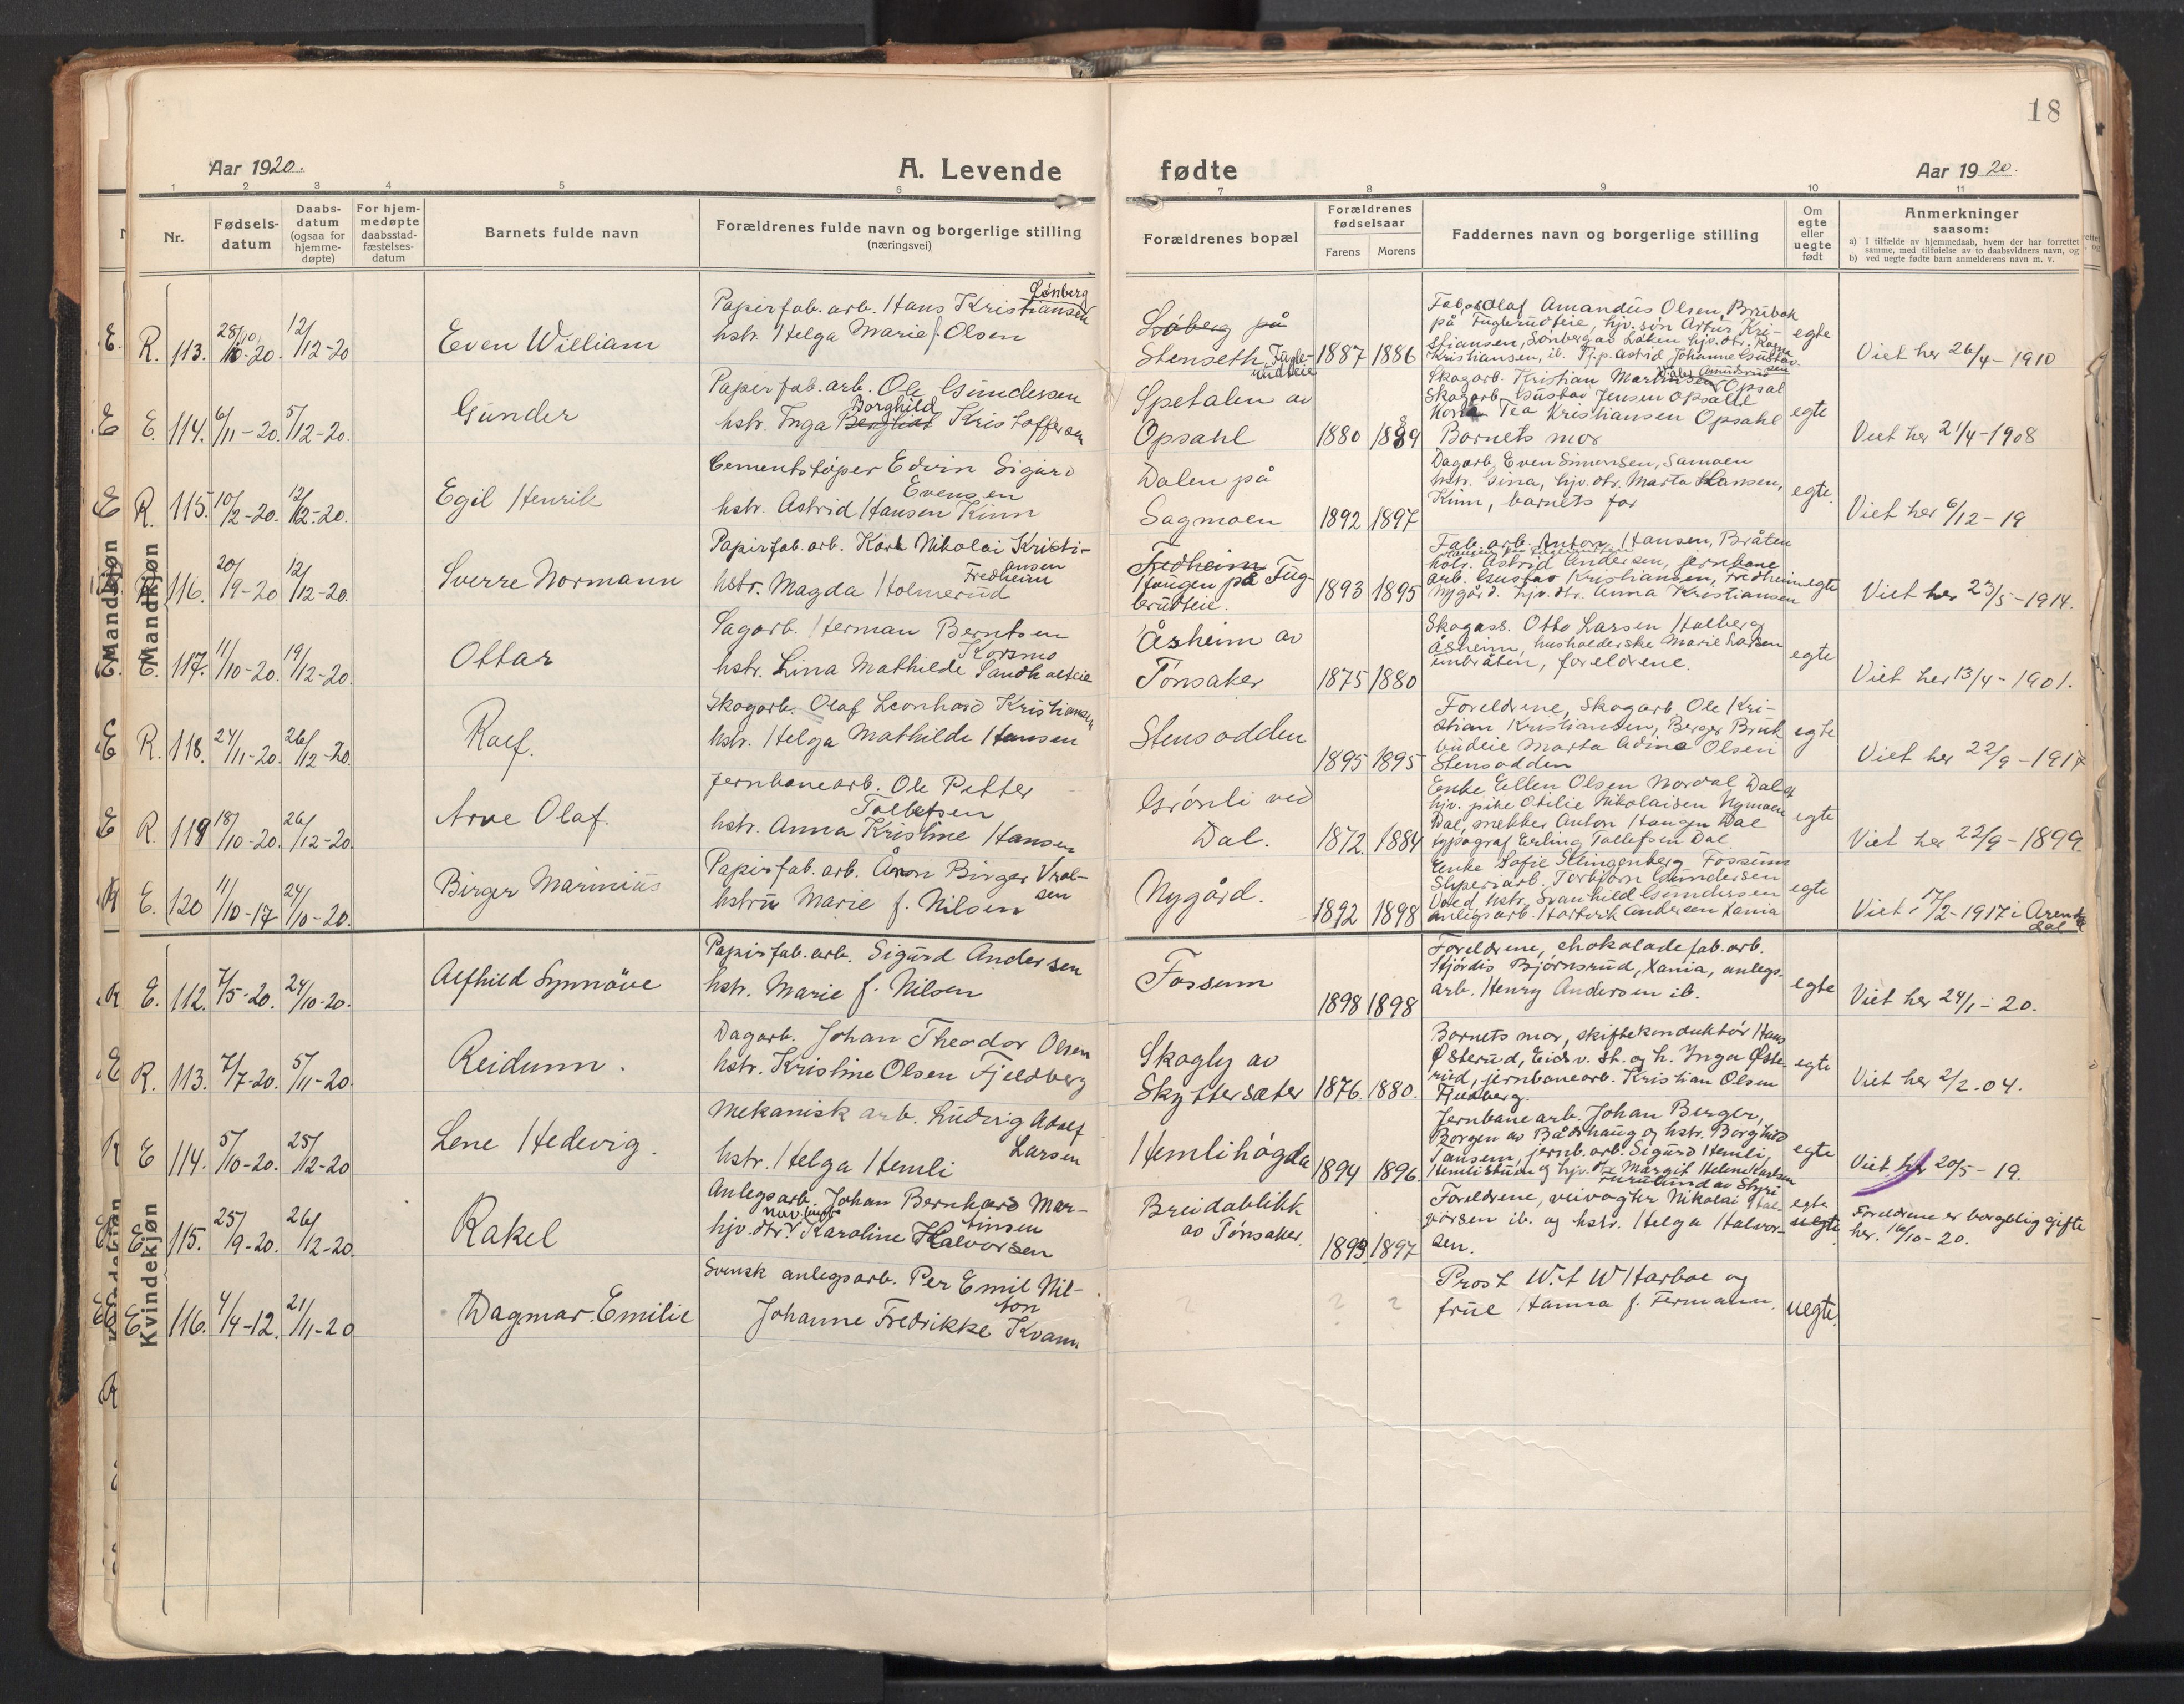 18
Aar 1920.
A. Levende
fødte
Aar 1920.
1 2 3 4 5 6 7 8 9 10 11
Nr.
Fødsels-
datum
Daabs-
datum
(ogsaa for
hjemme-
døpte)
For hjem-
medøpte
daabsstad-
fæstelses-
datum
Barnets fulde navn
Forældrenes fulde navn og borgerlige stilling
(næringsvei)
Forældrenes bopæl
Forældrenes
fødselsaar
Farens
Morens
Faddernes navn og borgerlige stilling
Om
egte
eller
uegte
født
Anmerkninger
saasom:
a) I tilfælde av hjemmedaab, hvem der har forrettet
samme, med tilføielse av to daabsvidners navn, og
b) ved uegte fødte barn anmelderens navn m. v.
Mandkjøn
R. 113. 28/10-20. 12/12-20
Even William
Lønberg
Papirfab. arb. Hans Kristiansen
hstr. Helga Marie f. Olsen
på
Stenseth, Fugle-
rudteie
1887 1886
Fab.arb. Olaf Amandus Olsen, Brubak
på Fuglerudteie, hjv. søn Artur Kri-
stiansen, Lønberg av Løken hjv. dtr. Ragna
Kristiansen, ib. Tj.p. Astrid Johanne Gustav-
sen
egte
Viet her 26/4-1910
E. 114. 6/11-20. 5/12-20.
Gunder
Papirfab. arb. Ole Gundersen
Borghild
hstr. Inga Kristoffersen
Spetalen av
Opsahl
1880 1889
Skogarb. Kristian Martinsen Opsal
Skogarb. Gustav Jensen Opsahl
Kona Tea Kristiansen Opsahl
Barnets mor
egte
Viet her 21/4-1908
R. 115. 10/2-20. 12/12-20.
Egil Henrik
Cementstøper Edvin Sigurd
Evensen
hstr. Astrid Hansen Kinn
Dalen på
Sagmoen
1892 1897
Dagarb. Even Simensen, Samoen
hstr. Gina, hjv. dtr. Marta Hansen,
Kinn, barnets far
egte.
Viet her 6/12-19
R. 116. 20/9-20 12/12-20.
Sverre Normann
Papirfab. arb. Karl Nikolai Kristi-
ansen
Fredheim
hstr. Magda Holmerud
Fredheim
Haugen på Fug-
lerudteie.
1893 1895
Fab. arb. Anton Hansen, Bråten
hstr. Astrid Andersen, jernbane
arb. Gustav Kristiansen, Fredheim
Nygård. hjv. dtr. Anna Kristiansen
egte
Viet her 23/5-1914.
E. 117. 11/10-20. 19/12-20.
Ottar
Sagarb. Herman Berntsen
Korsmo
hstr. Lina Mathilde Sandholteie
Åsheim av
Tonsaker
1875 1880
Skogass. Otto Larsen Halberg
Åsheim, husholderske Marie Larsen
Lunbråten, foreldrene.
egte
Viet her 13/4-1901.
R. 118. 24/11-20. 26/12-20.
Rolf.
Skogarb. Olaf Leonhard Kristiansen
hstr. Helga Mathilde Hansen
Stensodden
1895 1895
Foreldrene, Skogarb. Ole Kri-
stian Kristiansen, Berger Bruk
budeie Marta Adine Olsen
Stensodden
egte
Viet her 22/9-1917
R. 119 18/10-20. 26/12-20.
Arve Olaf.
Jernbanearb. Ole Petter
Tollefsen
hstr. Anna Kristine Hansen
Grønli ved
Dal.
1872. 1884
Enke Ellen Olsen Nordal Dal st
hjv. pike Otilie Nikolaisen Nymoen
Dal, snekker Anton Haugen Dal
typograf Erling Tollefsen Dal.
egte
Viet her 22/9-1899.
E. 120 11/10-17 24/10-20.
Birger Marinius
Papirfab. arb. Åron Birger Vrål-
sen
hstru Marie f. Nilsen
Nygård.
1892 1898
Enke Sofie Slingenberg Fossum
Sliperiarb. Torbjørn Gundersen
hstr. Svanhild Gundersen
anlegsarb. Andersen Xania
egte
Viet 17/2-1917 i Arendal
Kvindekjøn
E. 112. 7/5-20. 24/10-20.
Alfhild Synnöve
Papirfab. arb. Sigurd Andersen
hstr. Marie f. Nilsen
Fossum
1898 1898
Foreldrene, chokoladefab. arb.
Hjørdis Bjørnsrud, Xania, anlegs.
arb. Henry Andersen ib.
egte
Viet her 24/1-20.
R. 113. 7/7-20. 5/11-20.
Reidunn.
Dagarb. Johan Theodor Olsen
hstr. Kristine Olsen Fjeldberg
Skogly av
Skyttersæter
1876. 1880.
Barnets mor, skiftekonduktør Hans
Østerud, Eidsv. st. og h. Inga Øste-
rud, jernbanearb. Kristian Olsen
Fjeldberg.
egte
Viet her 2/2-04.
E 114. 5/10-20. 25/12-20
Lene Hedevig.
Mekanisk arb. Ludvig Adolf
Larsen
hstr. Helga Hemli
Hemlihøgda
1894 1896.
Jernbanearb. Johan Berger,
Borgen av Bådshaug og hstr. Borghild
Tansem, jernb. arb. Sigurd Hemli,
Hemlistuen og hjv. dtr. Margit Helene Karlsen
Furulund av Styri
egte
Viet her 20/5-19.
E 115. 25/9-20. 26/12-20.
Rakel
Anlegsarb. Johan Bernhard Mar-
tinsen
hjv. dtr. Karoline Halvorsen
Breidablikk
av Tønsaker.
1899 1897
Foreldrene, veivogter Nikolai Hal-
vorsen ib. og hstr. Helga Halvor-
sen.
egte
uegte
Foreldrene er borgelig gifte
her. 16/10-20.
E. 116. 4/4-12. 21/11-20
Dagmar Emilie
Svensk anlegsarb. Per Emil Nil-
son
Johanne Fredrikke Kvam
? ? ?
Prost W. A. W Harboe og
frue Hanna f. Fermann.
uegte.